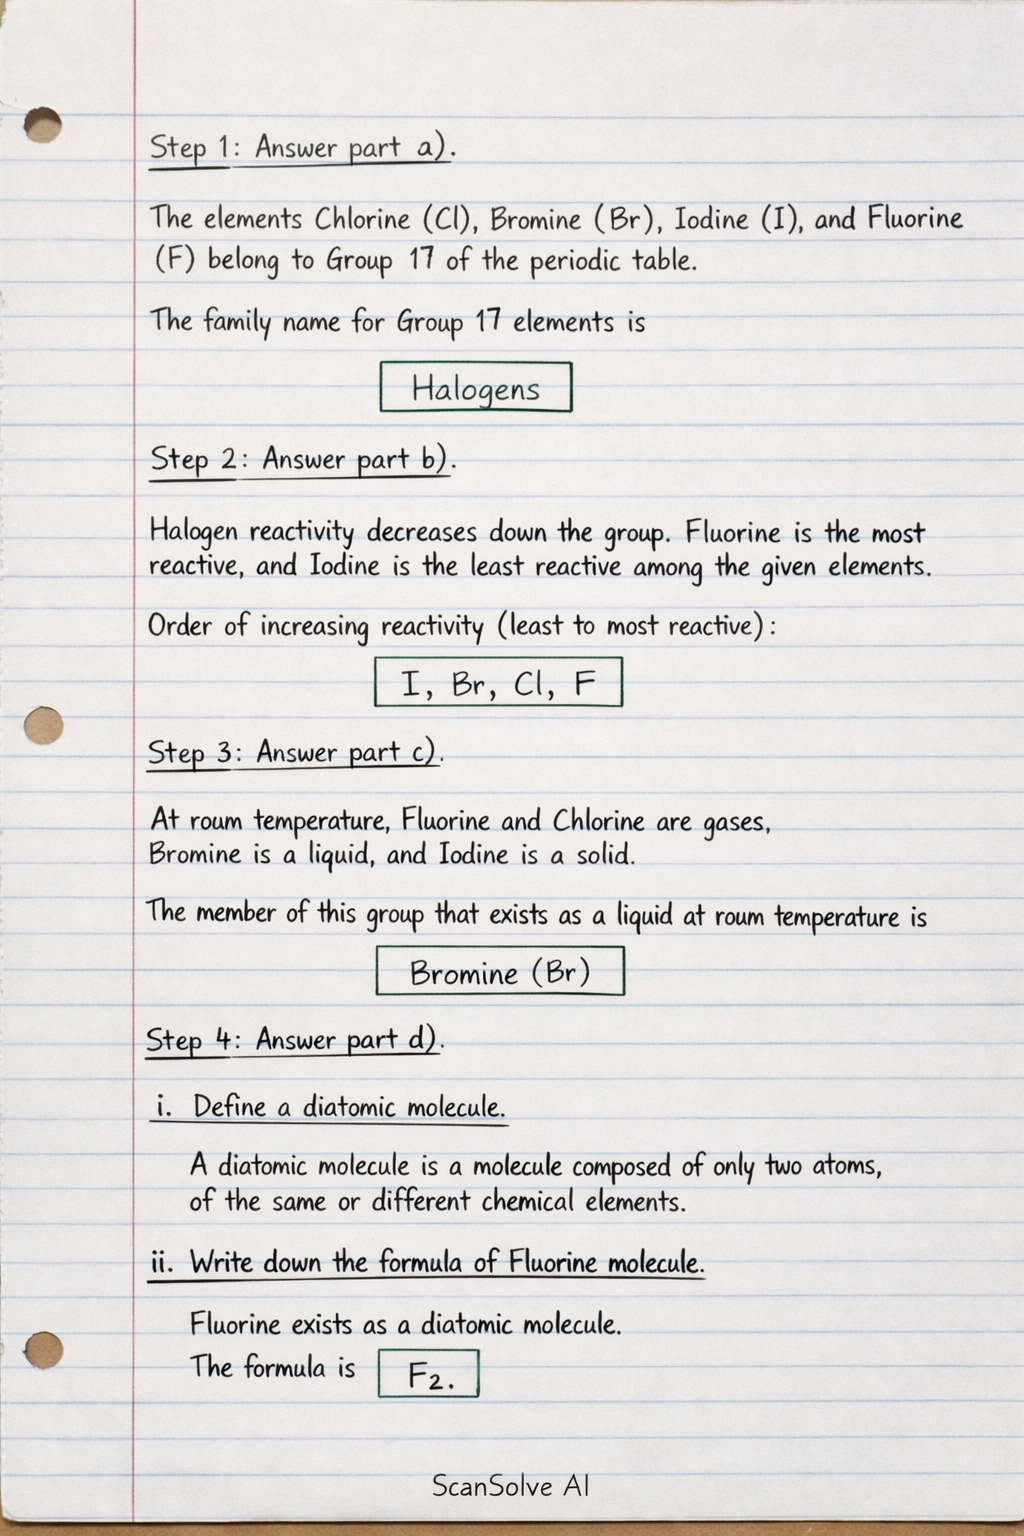 Step 1: Answer part a).
The elements Chlorine (Cl), Bromine (Br), Iodine (I), and Fluorine
(F) belong to Group 17 of the periodic table.
The family name for Group 17 elements is
Halogens
Step 2: Answer part b).
Halogen reactivity decreases down the group. Fluorine is the most
reactive, and Iodine is the least reactive among the given elements.
Order of increasing reactivity (least to most reactive):
I, Br, Cl, F
Step 3: Answer part c).
At roum temperature, Fluorine and Chlorine are gases,
Bromine is a liquid, and Iodine is a solid.
The member of this group that exists as a liquid at roum temperature is
Bromine (Br)
Step 4: Answer part d).
i. Define a diatomic molecule.
A diatomic molecule is a molecule composed of only two atoms,
of the same or different chemical elements.
ii. Write down the formula of Fluorine molecule.
Fluorine exists as a diatomic molecule.
The formula is F₂.
ScanSolve AI